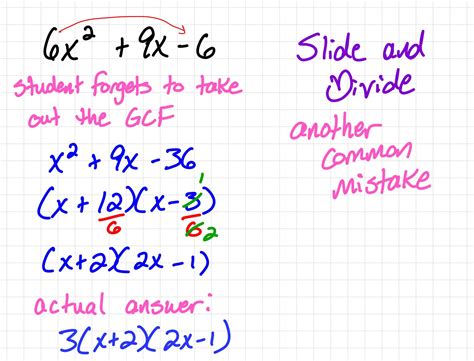 6x² + 9x - 6
student forgets to take
out the GCF
x² + 9x - 36
(x + 12)(x - 3)
6 6 1 2
(x+2)(2x - 1)
actual answer:
3(x+2)(2x-1)
Slide and
Divide
another
common
mistake